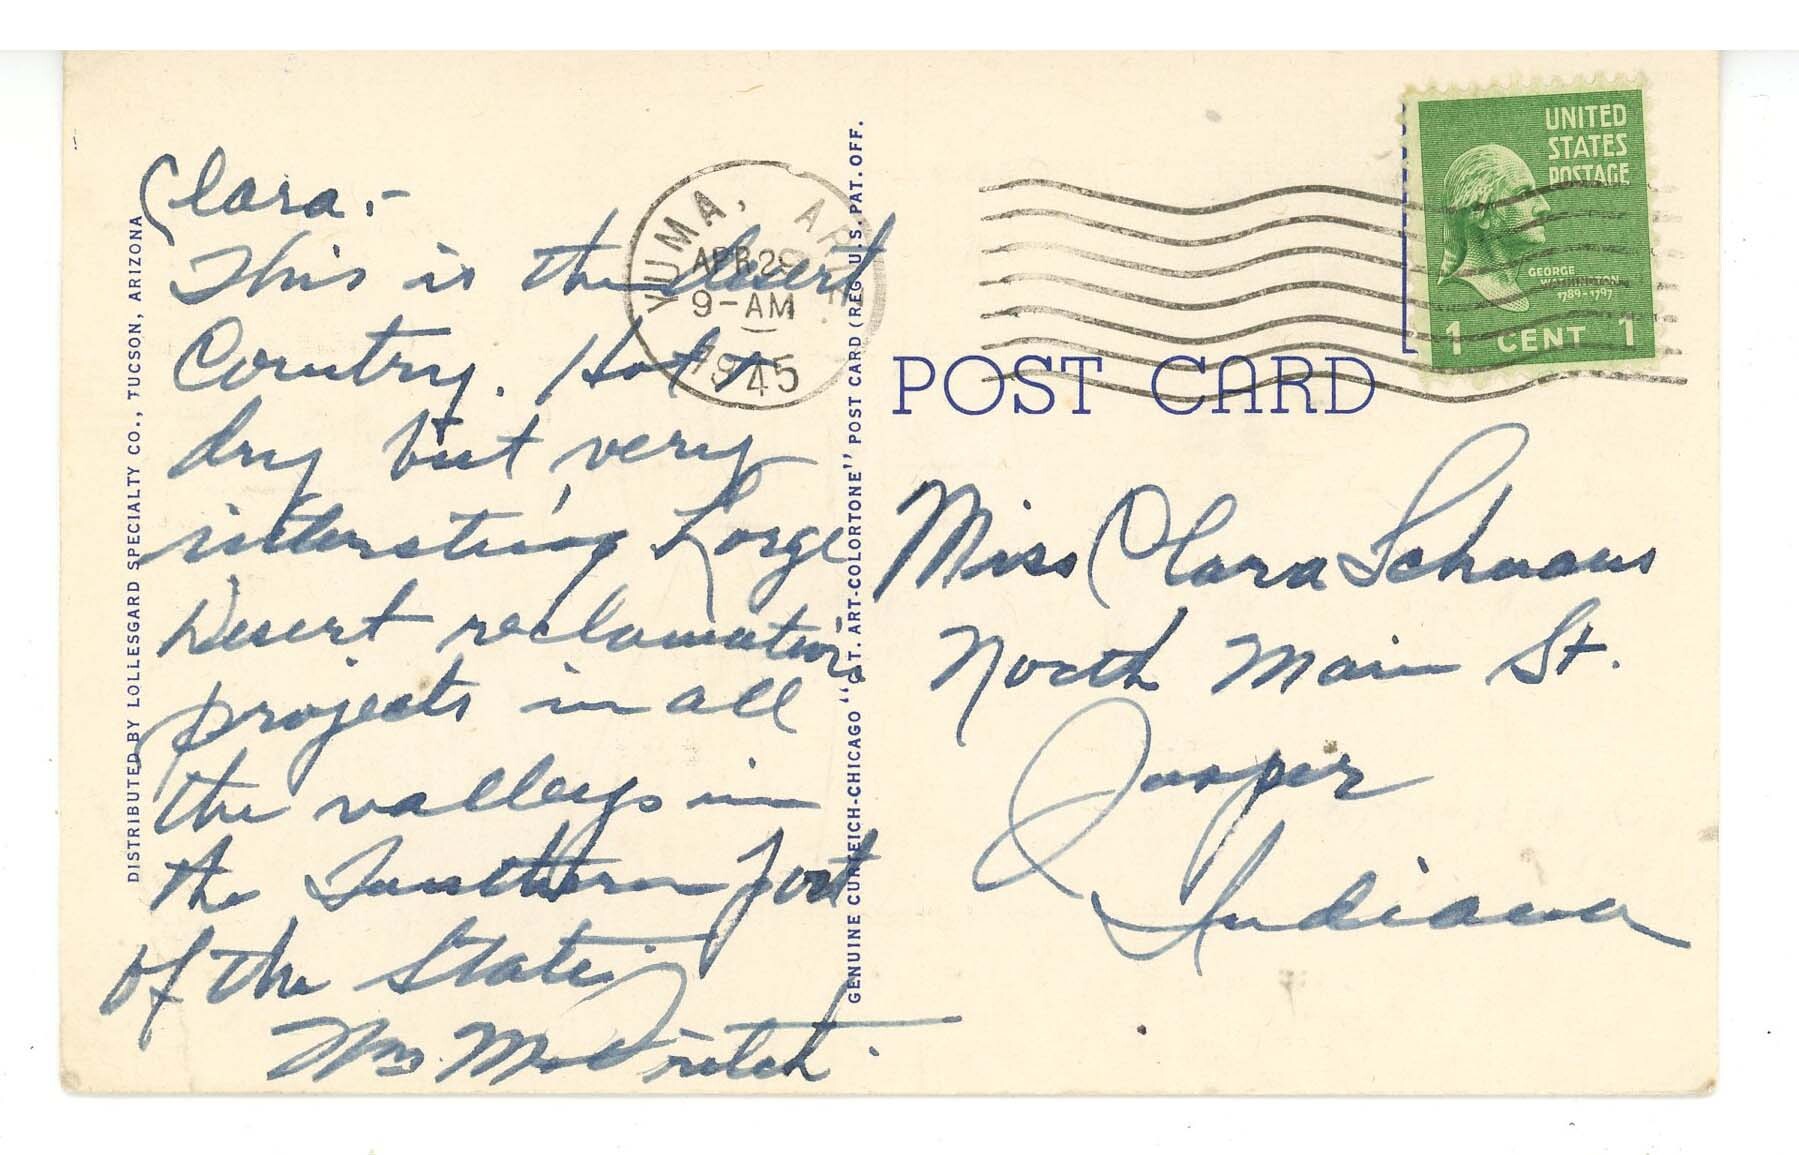 Clara.-
This is the Desert
Country. Hot &
dry but very
intersting Large
Desert reclamation
projects in all
the valleys in
the Southern part
of the State.
Mrs.
DISTRIBUTED BY LOLLESGARD SPECIALTY CO., TUCSON, ARIZONA
YUMA,
APR 29
9-AM
1945
GENUINE CURTEICH-CHICAGO "C.T. ART-COLORTONE" POST CARD (REG. U.S. PAT. OFF.
UNITED
STATES
POSTAGE
GEORGE
WASHINGTON
1789-1797
1 CENT 1
POST CARD
Miss Clara Schwaus
North Main St.
Jasper
Indiana